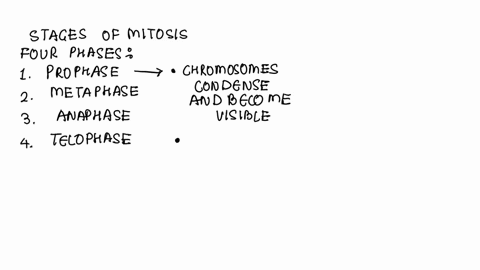 STAGES OF MITOSIS
FOUR PHASES:
1. PROPHASE → • CHROMOSOMES
CONDENSE
2. METAPHASE AND BECOME
3. ANAPHASE VISIBLE
4. TELOPHASE •